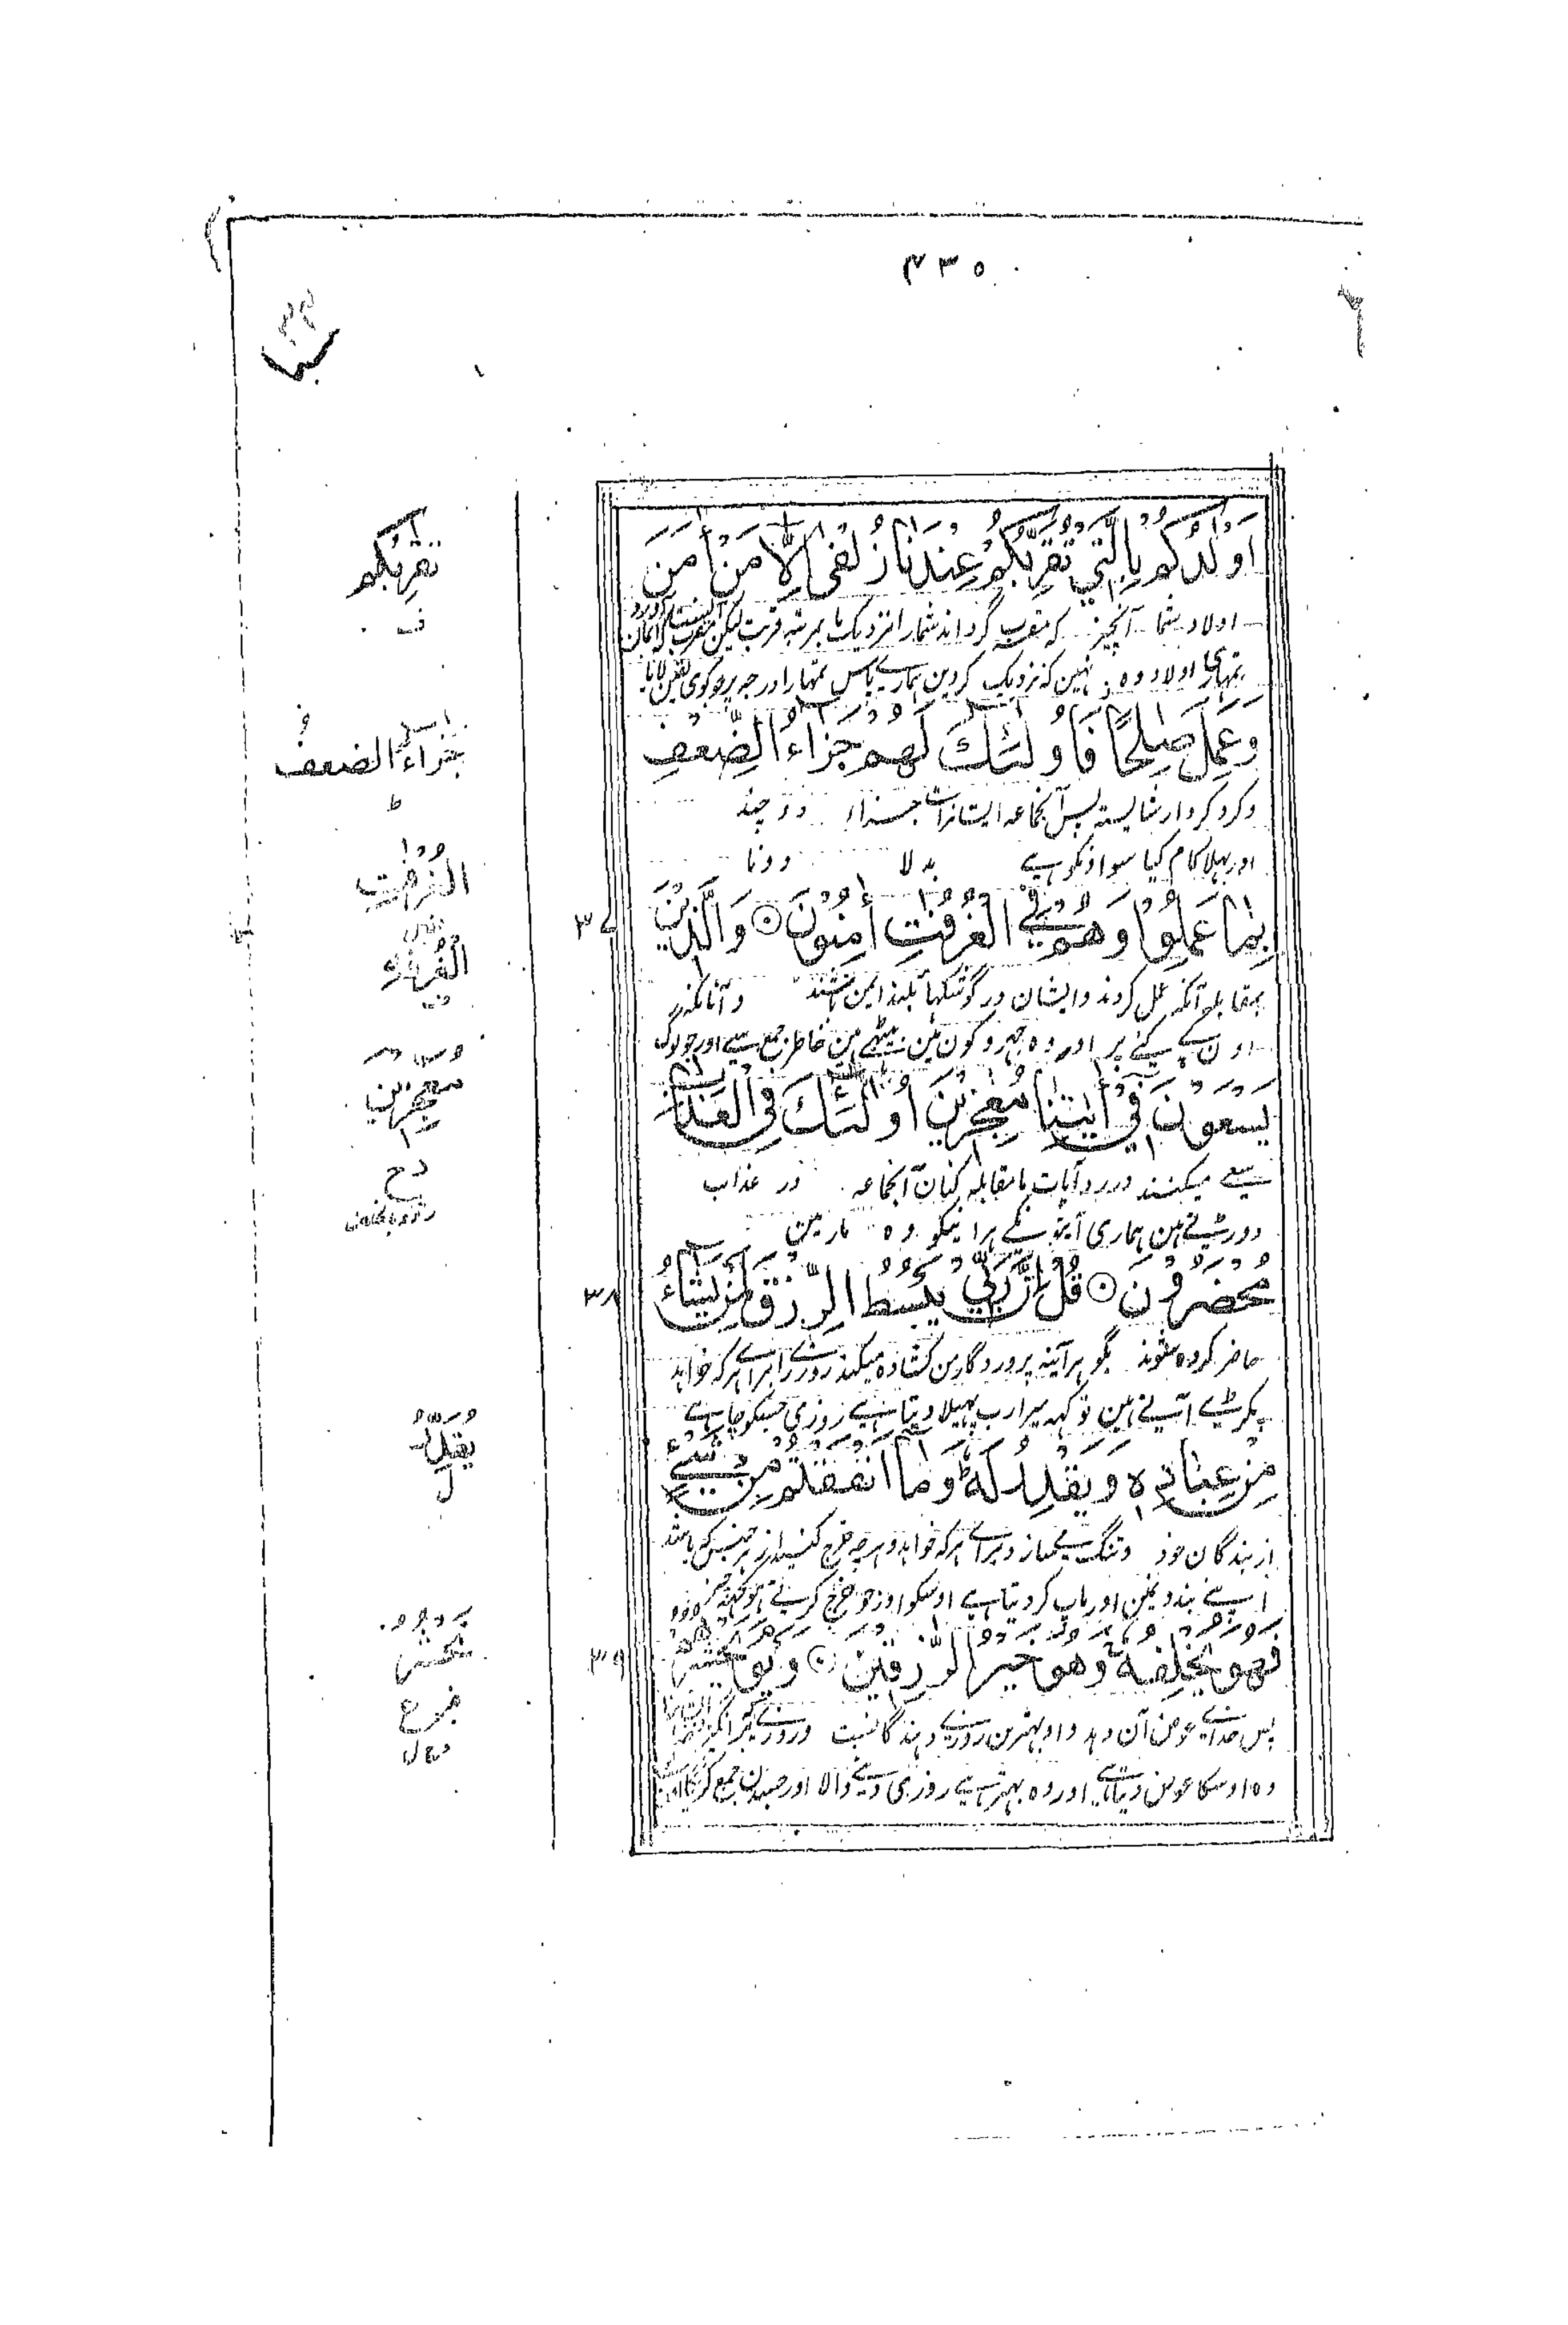 ۴۳۵
اَوْلَادُكُمْ بِالَّتِيْ تُقَرِّبُكُمْ عِنْدَنَا زُلْفٰى اِلَّا مَنْ اٰمَنَ
اولاد شما آنچیز که مقرب گرداند شمارا نزدیک ما بمرتبه قربت لیکن
تمہاری اولاد وہ نہین کہ نزدیک کردین ہمارے پاس تمہارا درجہ پر جو کوی یقین لایا
وَعَمِلَ صٰلِحًا فَاُولٰٓئِكَ لَهُمْ جَزَآءُ الضِّعْفِ
وکرد کردار شایسته پس آنجماعه ایشانراست جزاء دو چند
اور بہلا کام کیا سو اونکو ہے بدلا دونا
بِمَا عَمِلُوْا وَهُمْ فِي الْغُرُفٰتِ اٰمِنُوْنَ ۝ وَالَّذِيْنَ
بمقابله آنکه عمل کردند وایشان در کوشکها بلند ایمن باشند وآنانکه
اون کے کیے پر اور وہ جہروکون مین بیٹھے ہین خاطر جمع سے اور جو لوگ
يَسْعَوْنَ فِيْٓ اٰيٰتِنَا مُعٰجِزِيْنَ اُولٰٓئِكَ فِي الْعَذَابِ
سعے میکنند در رد آیات ما مقابله کنان آنجماعه در عذاب
دورٹے ہین ہماری آیتونکے ہرانیکو وہ مارمین
مُحْضَرُوْنَ ۝ قُلْ اِنَّ رَبِّيْ يَبْسُطُ الرِّزْقَ لِمَنْ يَّشَآءُ
حاضر کرده شوند بگو هرآینه پروردگار من کشاده میکند روزے را براے هرکه خواهد
پکڑے آتے ہین تو کہہ میرا رب پہیلا دیتا ہے روزی جسکو چاہے
مِنْ عِبَادِهٖ وَيَقْدِرُ لَهٗ وَمَآ اَنْفَقْتُمْ مِّنْ شَيْءٍ
از بندگان خود وتنگ میسازد براے هرکه خواهد وهرچه خرج کنید از هر جنس که باشد
اپنے بندونمین اور ماپ کر دیتا ہے اوسکو اور جو خرچ کرتے ہو کچہہ چیز
فَهُوَ يُخْلِفُهٗ وَهُوَ خَيْرُ الرّٰزِقِيْنَ ۝ وَيَوْمَ يَحْشُرُهُمْ
پس خداے عوض آن دهد واو بهترین روزے دهندگانست وروزے که
وہ اوسکا عوض دیتا ہے اور وہ بہتر ہے روزی دینے والا اور جسدن جمع کریگا
تقربكم
ف
جزاء الضعف
ط
الغرفت
۳۷
معجزين
۳۸
يقدر
ل
۳۹
يحشر